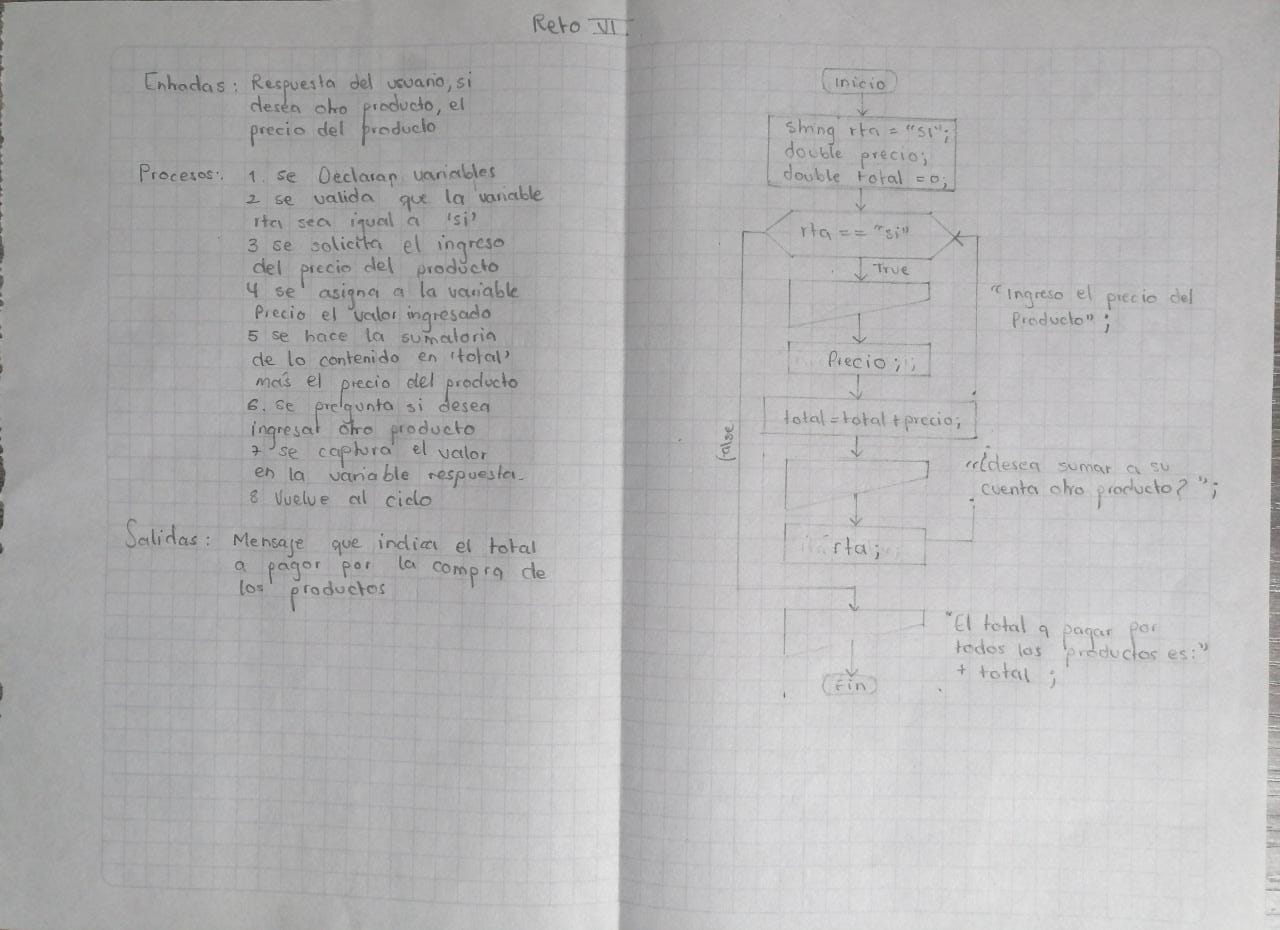 Reto VI
Entradas: Respuesta del usuario, si
desea otro producto, el
precio del producto
Procesos: 1. se Declaran variables
2 se valida que la variable
rta sea igual a 'si'
3 se solicita el ingreso
del precio del producto
4 se asigna a la variable
Precio el valor ingresado
5 se hace la sumatoria
de lo contenido en 'total'
más el precio del producto
6. se pregunta si desea
ingresar otro producto
7 se captura el valor
en la variable respuesta.
8 Vuelve al ciclo
Salidas: Mensaje que indica el total
a pagar por la compra de
los productos
Inicio
string rta = "si";
double precio;
double total = 0;
rta == "si"
True
"Ingreso el precio del
Producto";
Precio;
total = total + precio;
false
"¿desea sumar a su
cuenta otro producto?";
rta;
"El total a pagar por
todos los productos es:"
+ total;
Fin